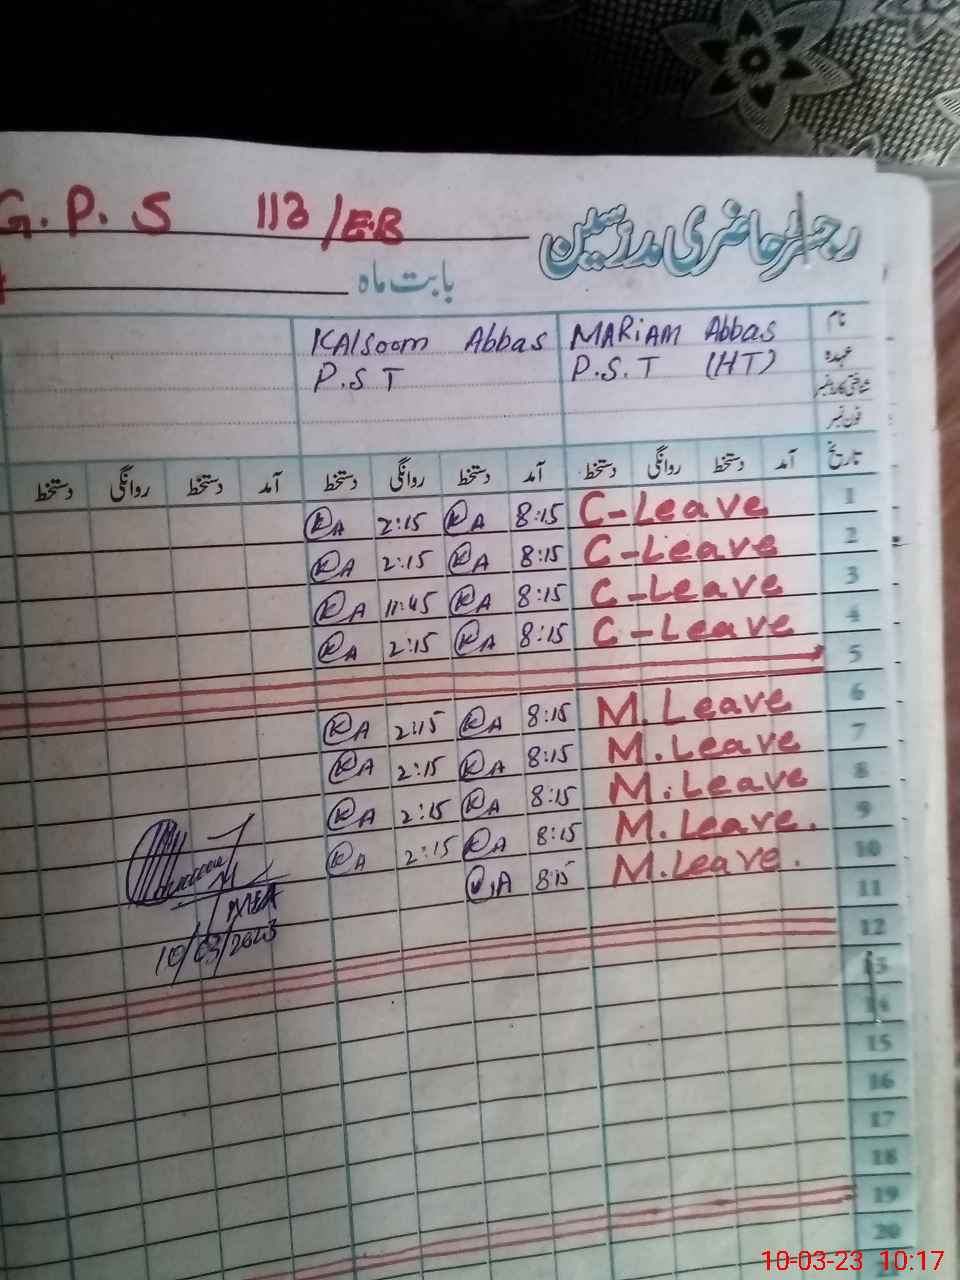 G. P. S 113/EB
رجسٹر حاضری مدرسین
بابت ماہ
نام MARiAM Abbas KAlsoom Abbas
عہدہ P.S.T (HT) P.S T
شناختی کارڈ نمبر
فون نمبر
تاریخ آمد دستخط روانگی دستخط آمد دستخط روانگی دستخط آمد دستخط روانگی دستخط
1 C-Leave 8:15 KA 2:15 KA
2 C-Leave 8:15 KA 2:15 KA
3 C-Leave 8:15 KA 11:45 KA
4 C-Leave 8:15 KA 2:15 KA
5
6 M. Leave 8:15 KA 2:15 KA
7 M. Leave 8:15 KA 2:15 KA
8 M. Leave 8:15 KA 2:15 KA
9 M. Leave. 8:15 KA 2:15 KA
10 M. Leave. 8:15 KA
11
12
13
14
15
16
17
18
19
20
MEA
10/03/2023
10-03-23 10:17